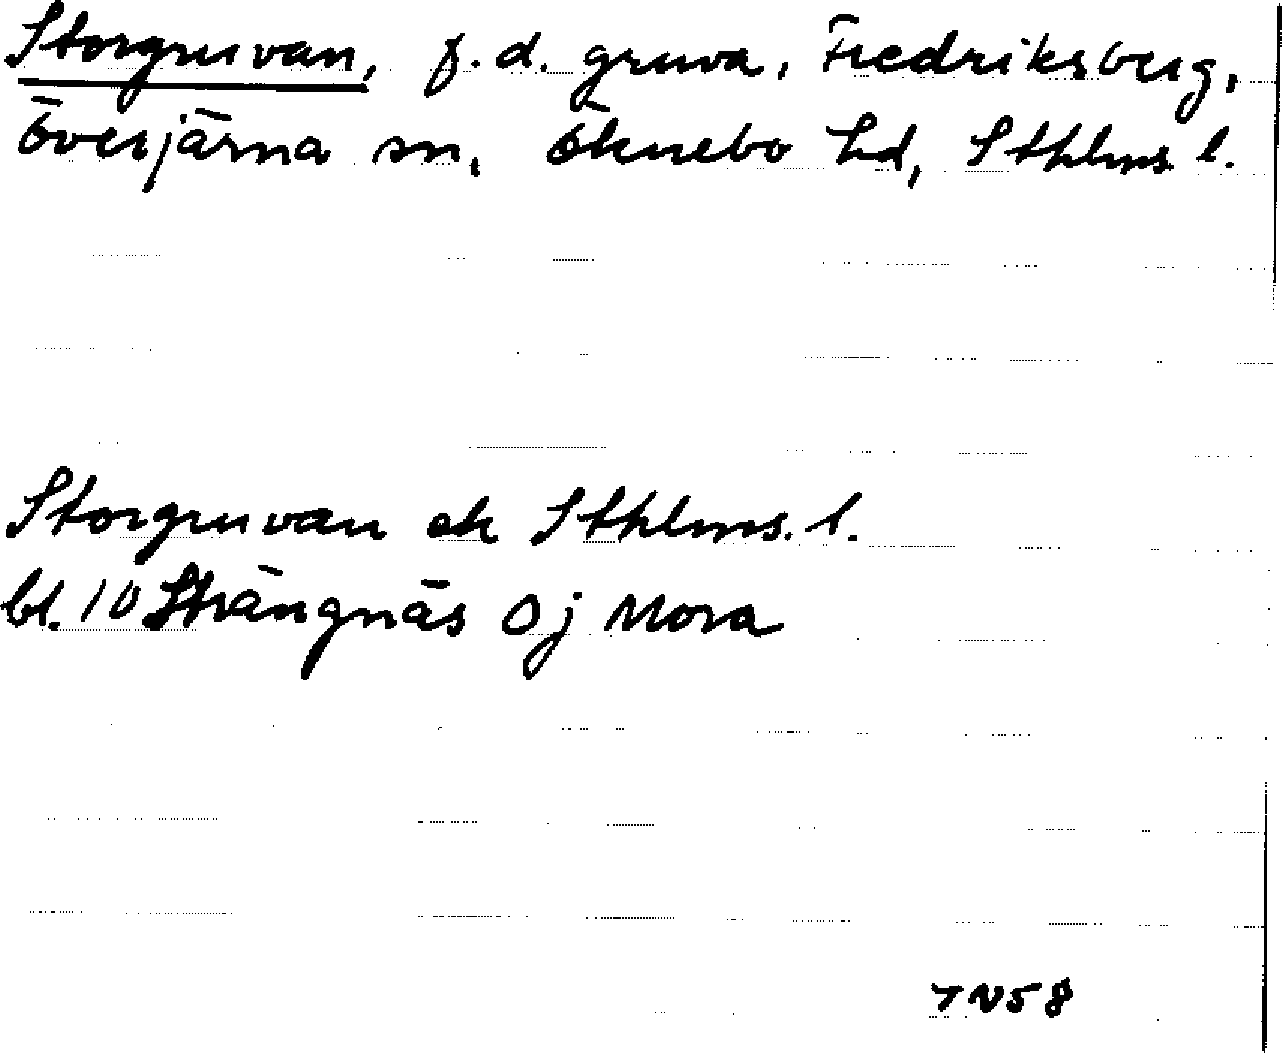 Storgruvan, f.d. gruva, Fredriksberg,
Överjärna sn, Öknebo hd, Sthlms l.
Storgruvan ek Sthlms. l.
bl. 10 Strängnäs Oj Mora
TN58